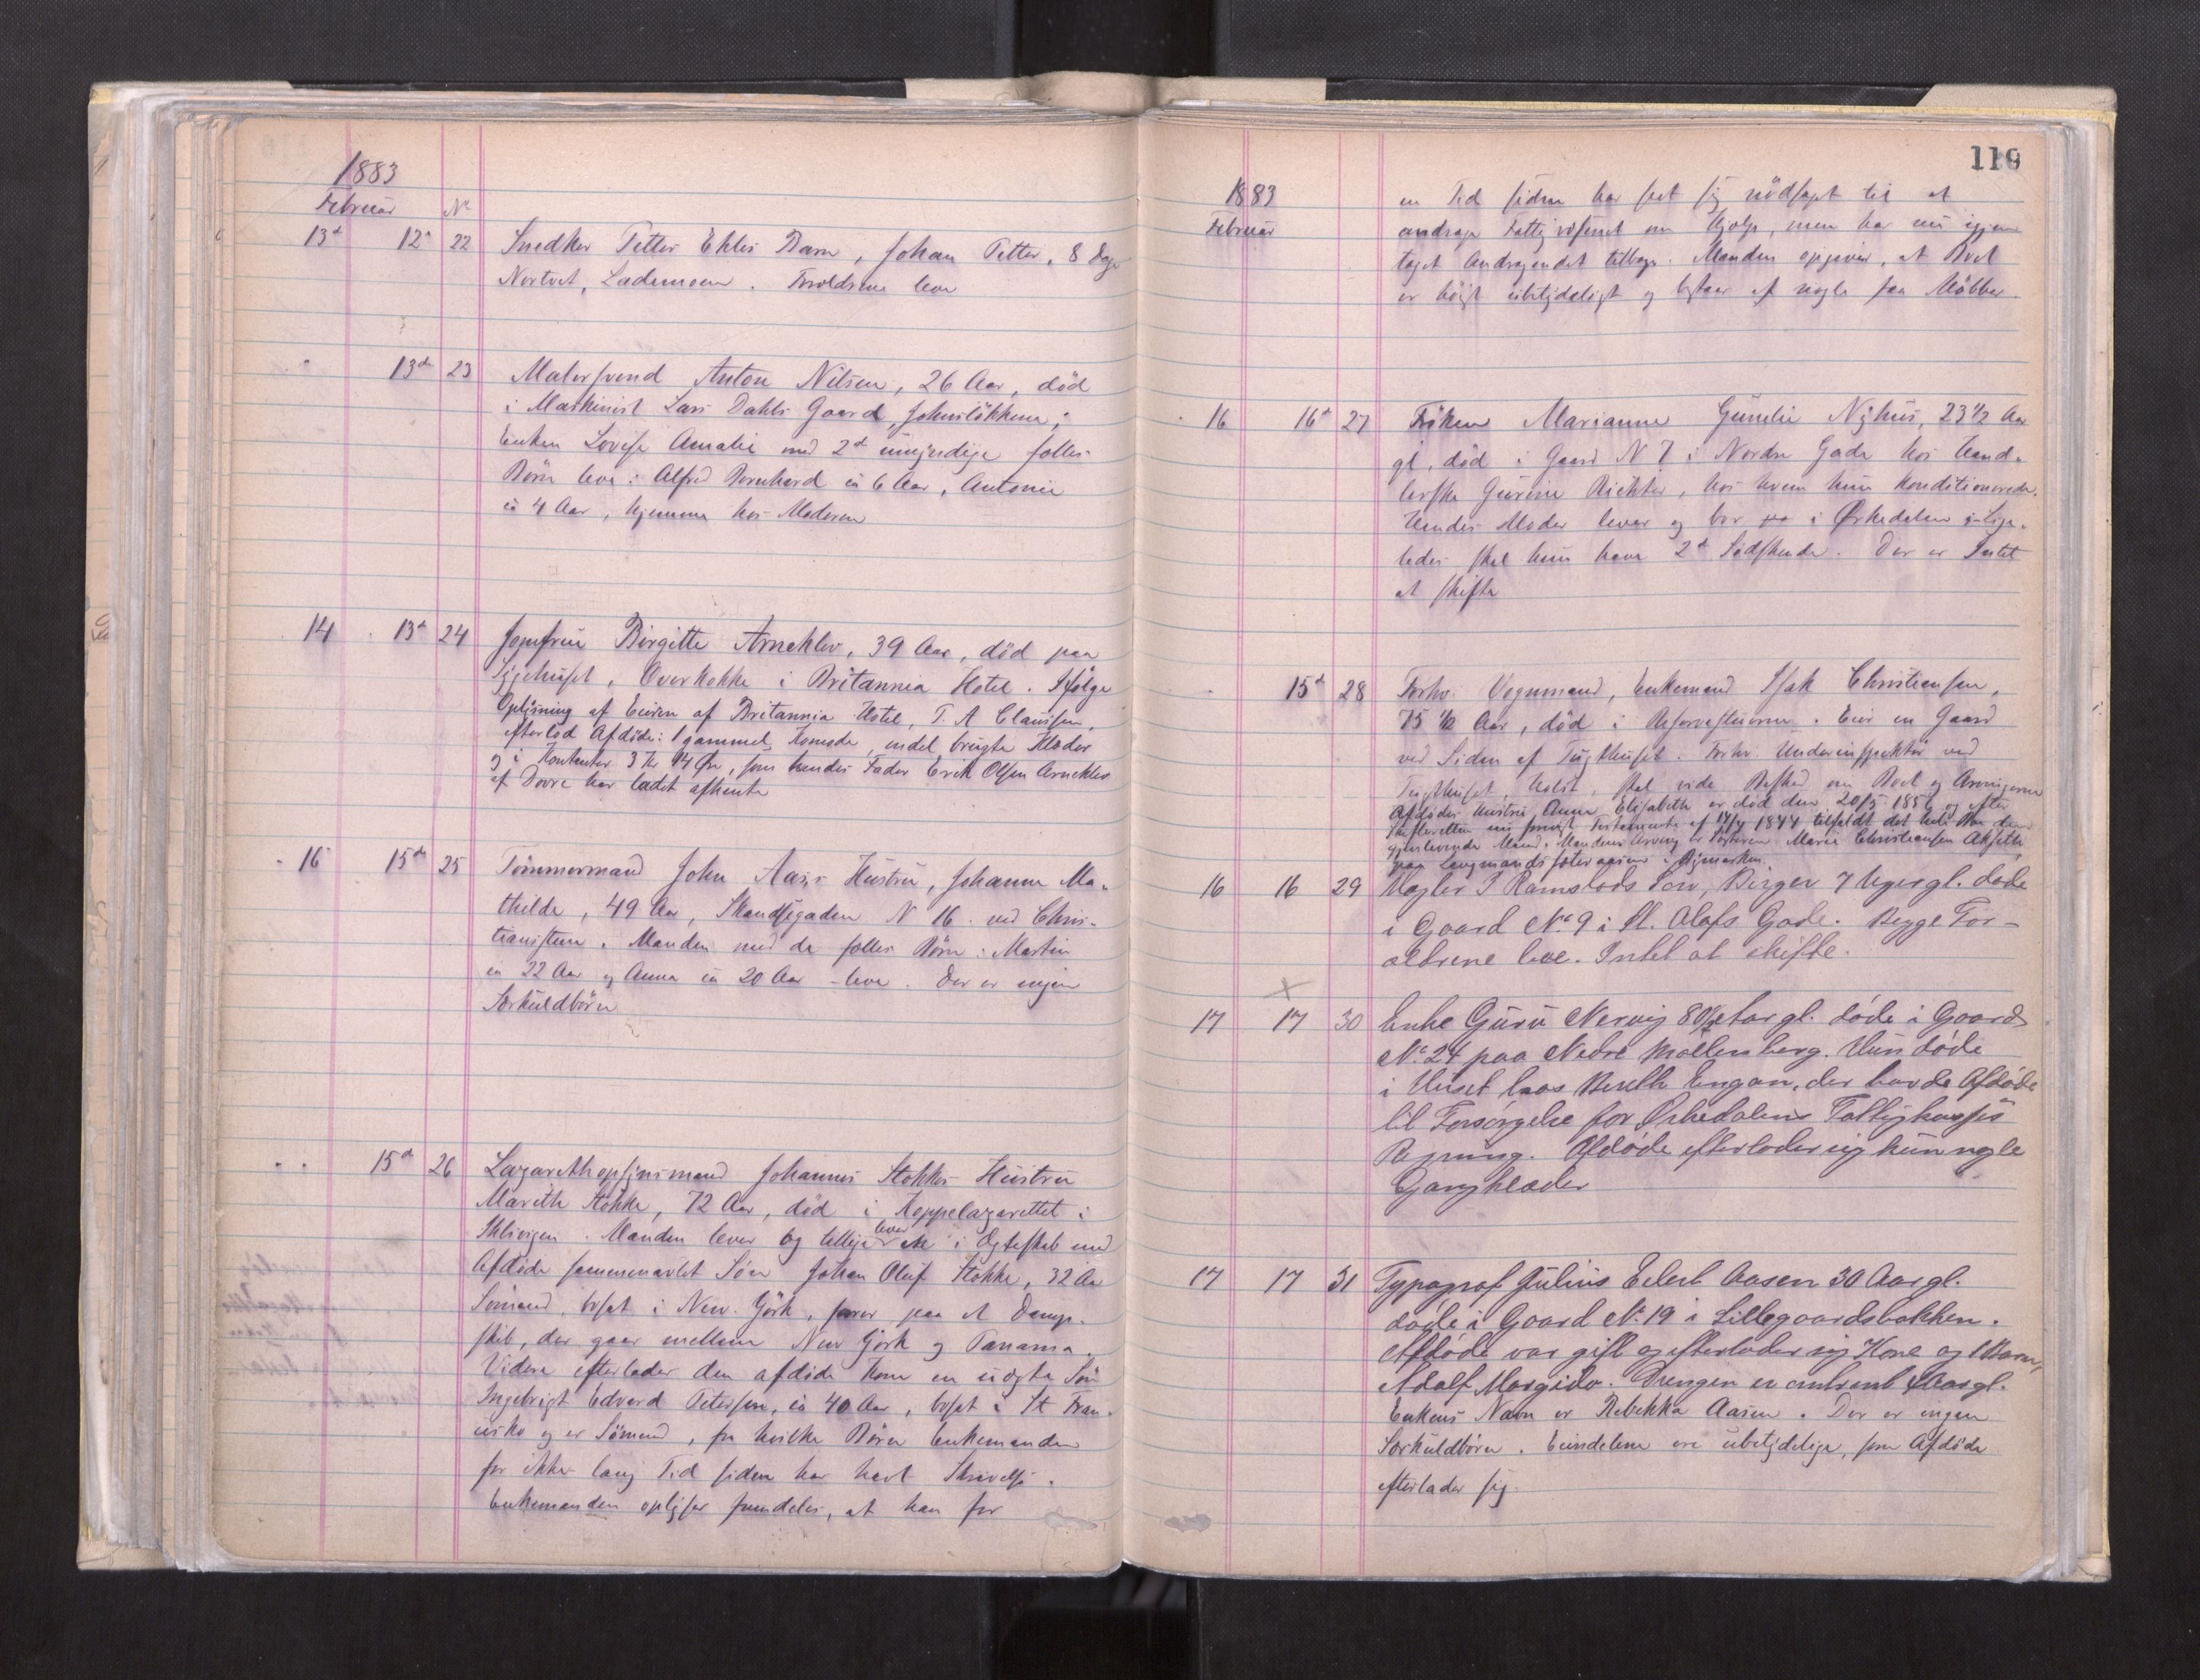 1883
Februar No
13d 12d 22 Snedker Petter Ehlis Barn, Johan Petter, 8 Dage
Nortvet, Lademoen. Forældrene leve
" 13de 23 Malersvend Anton Nilsen, 26 Aar, død
i Maskinist Lars Dahls Gaard, Johnsløkken;
Enken Lovise Amalie med 2de umyndige fælles
Børn leve: Alfred Bernhard in 6 Aar, Antonie
in 4 Aar, hjemme hos Moderen
14 13de 24 Jomfru Birgitte Arneklev, 39 Aar, død paa
Sygehuset, Overkokke i Britannia Hotel. Ifølge
Oplysning af Eieren af Britannia Hotel, T. A Claussen,
efterlod Afdøde: 1 gammel Komode, endel brugte Klæder
og i Kontanter 3 Kr 14 Øre, som hendes Fader Erik Olsen Arneklev
af Dovre har ladet afhente
" 16 15de 25 Tømmermand John Aas's Hustru, Johanna Ma-
thilde, 49 Aar, Skandsegaden N 16 ved Chris-
tiansten. Manden med de fælles Børn: Martin
in 22 Aar og Anna in 20 Aar - leve. Der er ingen
Særkuldbørn
" " 15de 26 Lazarethopsynsmand Johannes Stokkes Hustru
Marith Stokke, 72 Aar, død i Koppelazarettet i
Ihlsvigen. Manden lever og tillige lever et i Ægteskab med
Afdøde sammenavlet Søn Johan Oluf Stokke, 32 Aar
Sømand, bosat i New-York, farer paa et Damp-
skib, der gaar mellem New York og Panama.
Videre efterlader den afdøde Kone en uægte Søn
Ingebrigt Edvard Petersen, in 40 Aar, bosat i St Fran-
cisko og er Sømand, fra hvilke Børn Enkemanden
for ikke lang Tid siden har havt Skrivelse.
Enkemanden oplyser fremdeles, at han for
119
1883
Februar
en Tid siden har seet sig nødsaget til at
andrage Fattigvæsenet om Hjælp, men har nu igjen
taget Andragendet tilbage. Manden opgiver, at Boet
er høist ubetydeligt og bestaar af nogle faa Møbler.
16 16de 27 Frøken Marianne Gunelie Nyhus, 23 1/2 Aar
gl, død i Gaard N 7 i Nordre Gade hos Hand-
lerske Gurine Richter, hos hvem hun konditionerede.
Hendes Moder lever og bor i Ørkedalen Lige-
ledes skal hun have 2de Sødskende. Der er Intet
at skifte
15de 28 Forhv. Vognmand, Enkemand Isak Christiansen,
75 1/2 Aar, død i Reservestuerne. Eier en Gaard
ved Siden af Tugthuset. Forhv. Underinspektør ved
Tugthuset, Holst, skal vide Besked om Boet og Arvingerne
Afdødes Hustru Anne Elisabeth er død den 20/5 1856 og efter
Skifteretten tilfaldt det hele Bo den
gjenlevende Mand. Mandens Arving er Søsteren Marie Christiansen
paa Langmands i Bymarken.
16 16 29 Mægler P Ramstads Søn, Birger 7 Uger gl. døde
i Gaard No 9 i St. Olafs Gade. Begge For-
ældrene leve. Intet at skifte.
17 17 30 Enke Guru Nervig 80 1/2 Aar gl. døde i Gaard
No. 24 paa Nedre Møllenberg. Hun døde
i Huset hos Bereth Engan, der havde Afdøde
til Forsørgelse for Ørkedalens Fattigkasses
Regning. Afdøde efterlader sig kun nogle
Gangklæder
17 17 31 Typograf Julius Eilert Aasen 30 Aar gl.
døde i Gaard No 19 i Lillegaardsbakken.
Afdøde var gift og efterlader sig Kone og 1 Barn,
Adolf Margido. Drengen er omtrent Aar gl.
Enkens Navn er Rebekka Aasen. Der er ingen
Særkuldbørn. Eiendelene ere ubetydelige, som Afdøde
efterlader sig.